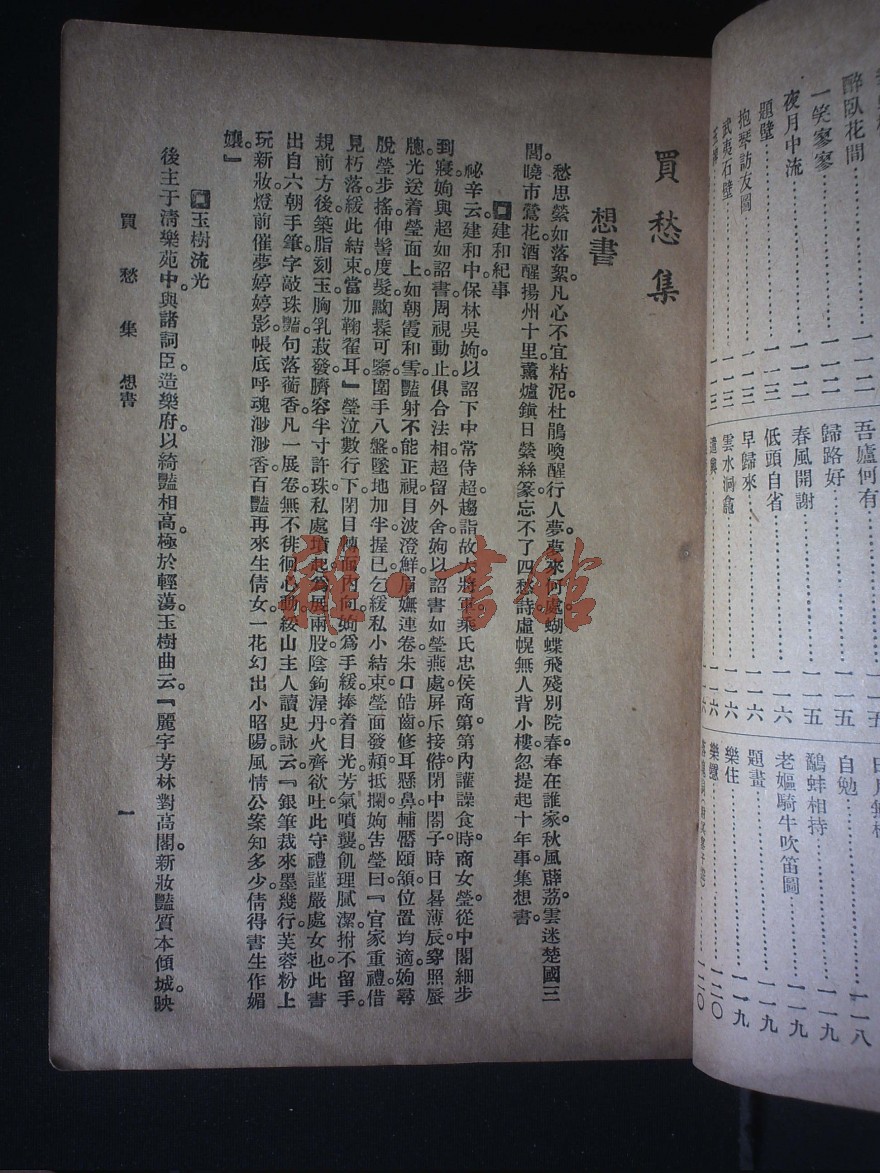 買愁集
想書
愁思縈如落絮。凡心不宜粘泥。杜鵑喚醒行人夢。夢來何處。蝴蝶飛殘別院春。春在誰家。秋風薜荔雲迷楚國三
閭。曉市鶯花酒醒揚州十里。薰爐鎮日縈絲篆。忘不了四愁詩。虛幌無人背小樓。忽提起十年事。集想書。
建和紀事
祕辛云。建和中。保林吳姁以詔下中常侍超趨詣故大將軍乘氏忠侯商第。第內讙譟。食時。商女瑩從中閣細步
到寢。姁與超如詔書周視動止。俱合法相。超留外舍。姁以詔書如瑩燕處。屏斥接侍。閉中閣子。時日晷薄辰。穿照蜃
牕。光送着瑩面上。如朝霞和雪。豔射不能正視。目波澄鮮。眉嫵連卷。朱口皓齒。修耳懸鼻。輔靨頤頷。位置均適。姁尋
脫瑩步搖。伸髻度髮。黝鬆可鑒。圍手八盤。墜地加半握。已乞緩私小結束。瑩面發頳抵攔。姁告瑩曰。『官家重禮。借
見朽落。緩此結束。當加鞠翟耳。』瑩泣數行下。閉目轉面內向。姁爲手緩。捧着目光。芳氣噴襲。飢理膩潔。拊不留手。
規前方後。築脂刻玉。胸乳菽發。臍容半寸許珠。私處墳起。爲展兩股。陰鉤渥丹。火齊欲吐。此守禮謹嚴處女也。此書
出自六朝手筆。字敲珠豔。句落蘅香。凡一展卷。無不徘徊心動。綏山主人讀史詠云。『銀筆裁來墨幾行。芙蓉粉上
玩新妝。燈前催夢婷婷影。帳底呼魂渺渺香。百豔再來生倩女。一花幻出小昭陽。風情公案知多少。倩得書生作媚
孃。』
玉樹流光
後主于淸樂苑中。與諸詞臣。造樂府。以綺豔相高。極於輕蕩。玉樹曲云。『麗宇芳林對高閣。新妝豔質本傾城。映
買愁集 想書
一
醉臥花間 一一二
一笑寥寥 一一二
夜月中流 一一二
題壁 一一三
抱琴訪友圖 一一三
武夷石壁 一一三
吾廬何有 一一五
歸路好 一一五
春風開謝 一一五
低頭自省 一一六
早歸來 一一六
雲水洞龕 一一六
一一八
自勉 一一八
鷸蚌相持 一一九
老嫗騎牛吹笛圖 一一九
題畫 一一九
樂住 一一九
樂隱 一二〇
一二〇
雜·書館